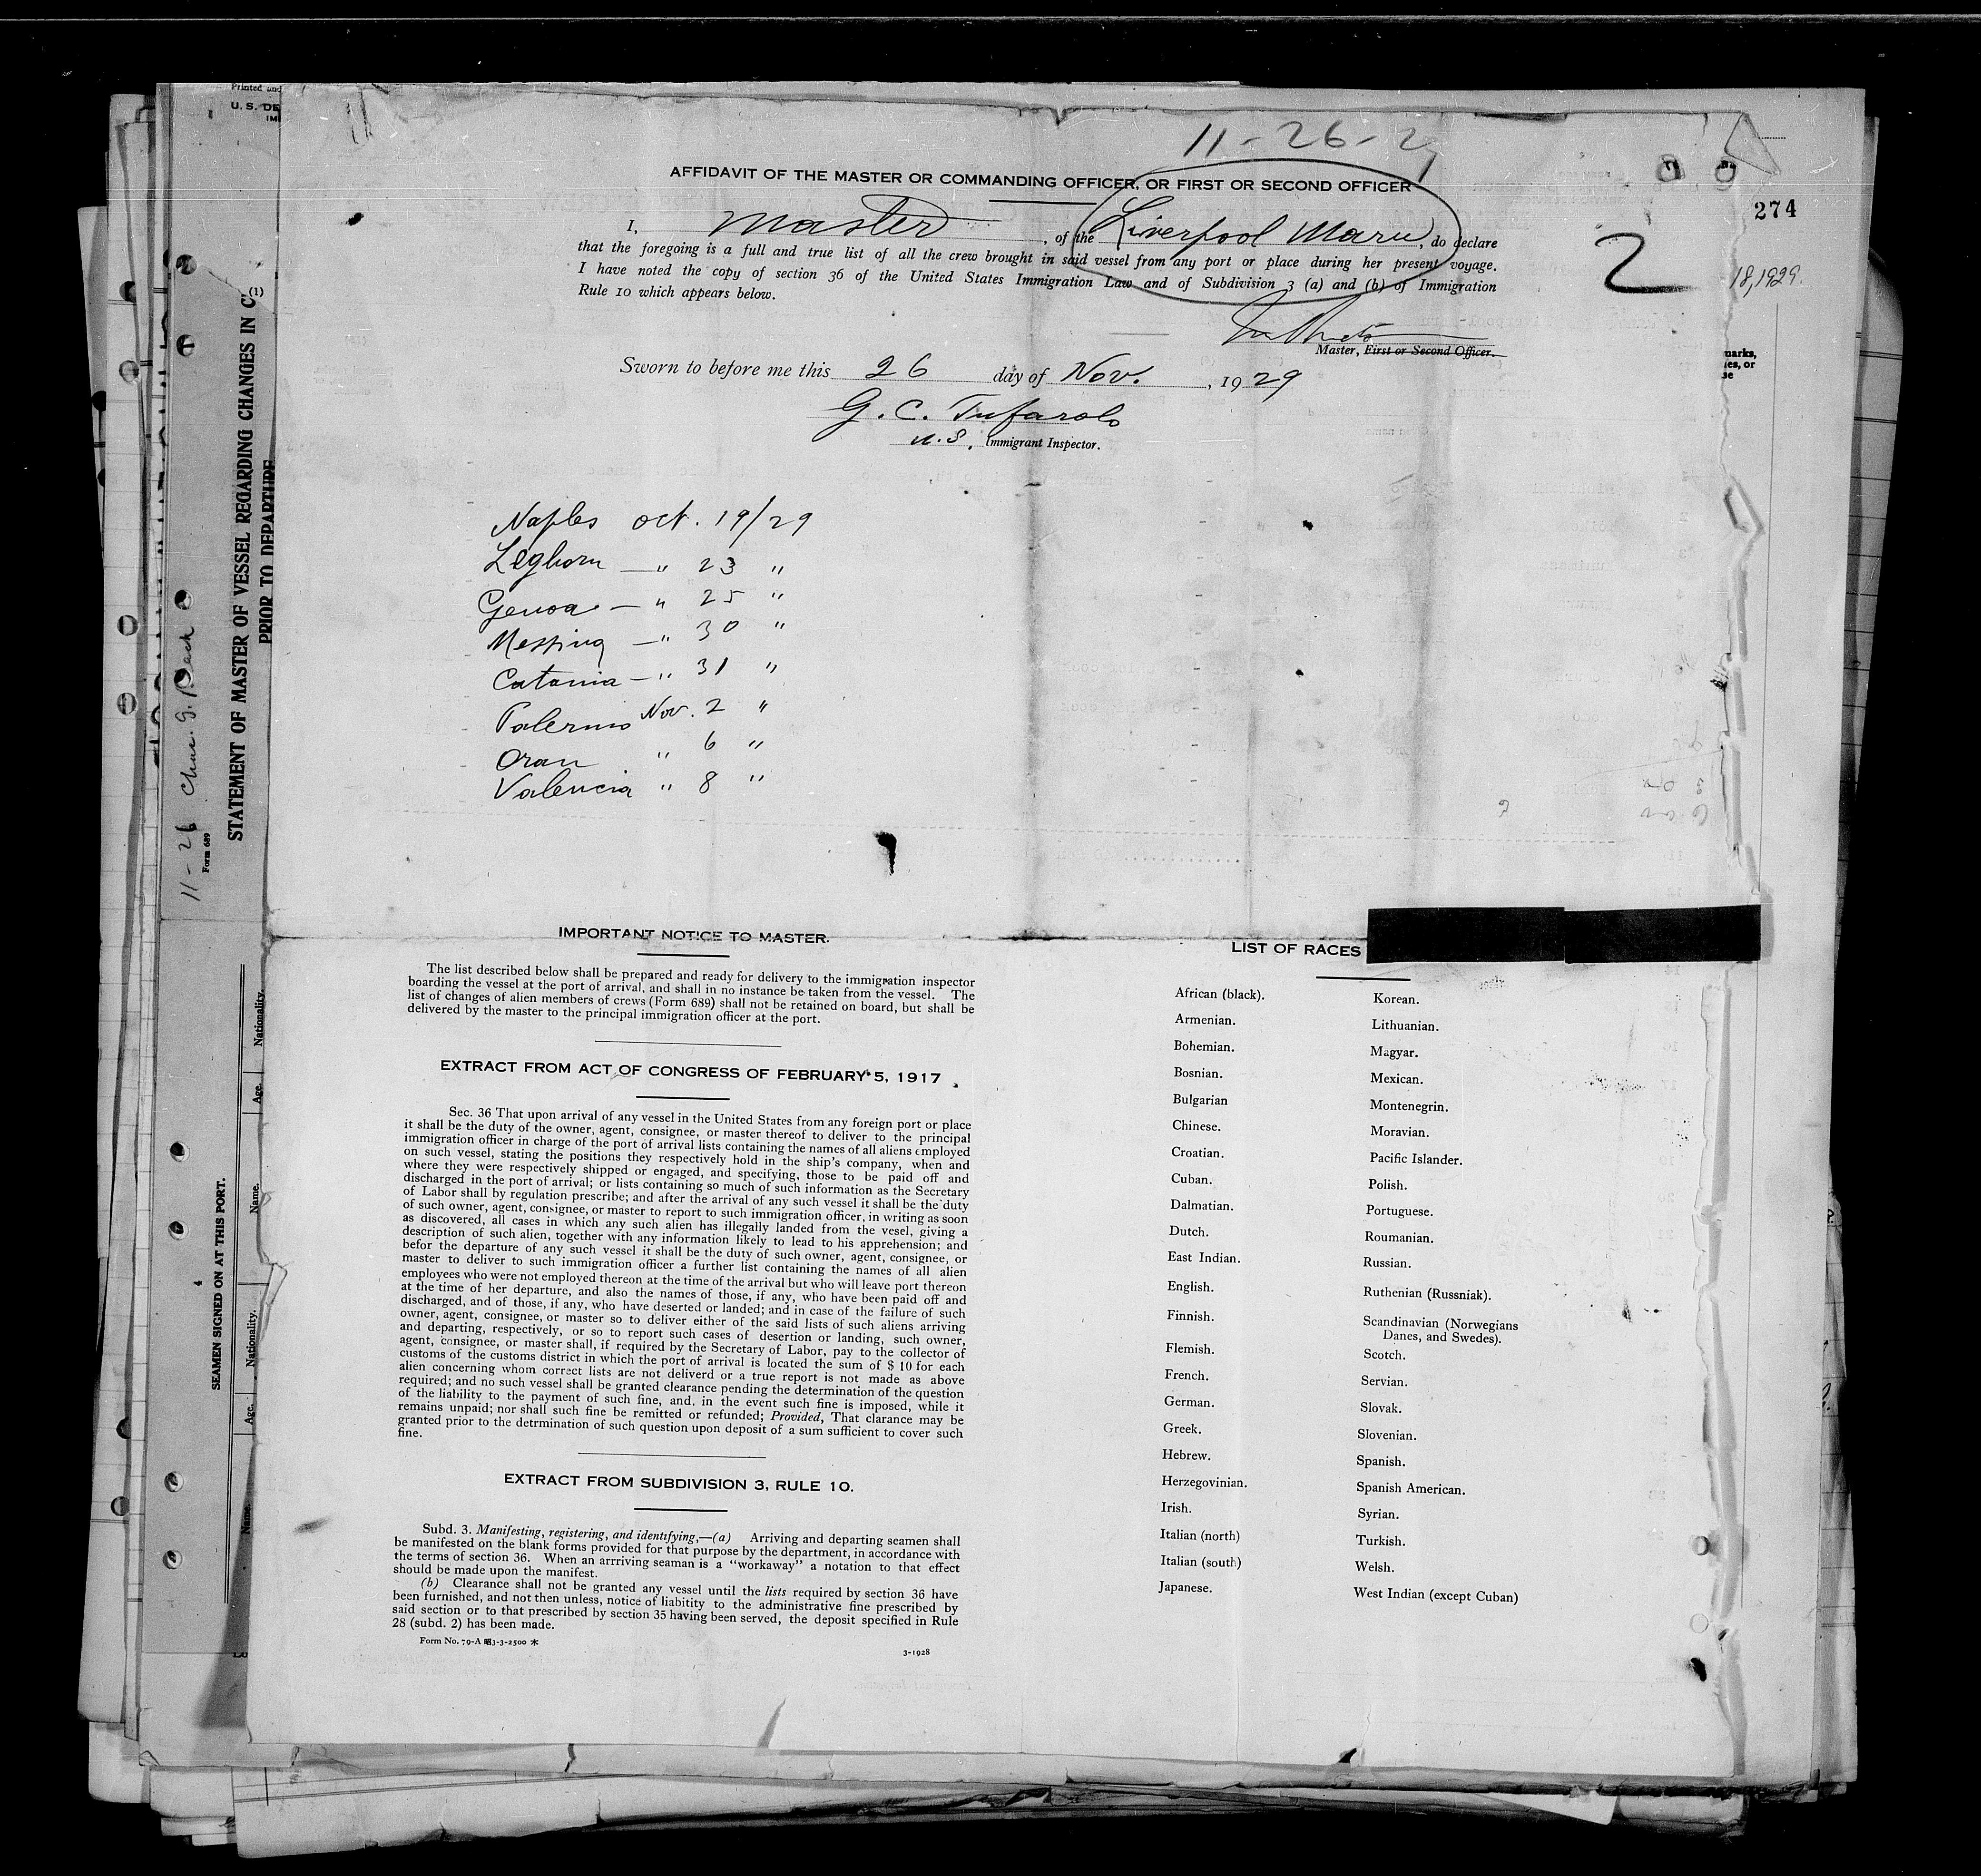 11-26-29
AFFIDAVIT OF THE MASTER OR COMMANDING OFFICER, OR FIRST OR SECOND OFFICER
I, Master, of the Liverpool Maru, do declare
that the foregoing is a full and true list of all the crew brought in said vessel from any port or place during her present voyage.
I have noted the copy of section 36 of the United States Immigration Law and of Subdivision 3 (a) and (b) of Immigration
Rule 10 which appears below.
274
2
18, 1929.
Master, First or Second Officer.
Sworn to before me this 26 day of Nov., 1929
G. C. Tufarolo
U.S. Immigrant Inspector.
marks,
Naples Oct. 19/29
Leghorn — " 23 "
Genoa — " 25 "
Messina — " 30 "
Catania — " 31 "
Palermo Nov. 2 "
Oran " 6 "
Valencia " 8 "
IMPORTANT NOTICE TO MASTER.
The list described below shall be prepared and ready for delivery to the immigration inspector
boarding the vessel at the port of arrival, and shall in no instance be taken from the vessel. The
list of changes of alien members of crews (Form 689) shall not be retained on board, but shall be
delivered by the master to the principal immigration officer at the port.
EXTRACT FROM ACT OF CONGRESS OF FEBRUARY 5, 1917
Sec. 36 That upon arrival of any vessel in the United States from any foreign port or place
it shall be the duty of the owner, agent, consignee, or master thereof to deliver to the principal
immigration officer in charge of the port of arrival lists containing the names of all aliens employed
on such vessel, stating the positions they respectively hold in the ship's company, when and
where they were respectively shipped or engaged, and specifying, those to be paid off and
discharged in the port of arrival; or lists containing so much of such information as the Secretary
of Labor shall by regulation prescribe; and after the arrival of any such vessel it shall be the duty
of such owner, agent, consignee, or master to report to such immigration officer, in writing as soon
as discovered, all cases in which any such alien has illegally landed from the vesel, giving a
description of such alien, together with any information likely to lead to his apprehension; and
befor the departure of any such vessel it shall be the duty of such owner, agent, consignee, or
master to deliver to such immigration officer a further list containing the names of all alien
employees who were not employed thereon at the time of the arrival but who will leave port thereon
at the time of her departure, and also the names of those, if any, who have been paid off and
discharged, and of those, if any, who have deserted or landed; and in case of the failure of such
owner, agent, consignee, or master so to deliver either of the said lists of such aliens arriving
and departing, respectively, or so to report such cases of desertion or landing, such owner,
agent, consignee, or master shall, if required by the Secretary of Labor, pay to the collector of
customs of the customs district in which the port of arrival is located the sum of $ 10 for each
alien concerning whom correct lists are not deliverd or a true report is not made as above
required; and no such vessel shall be granted clearance pending the determination of the question
of the liability to the payment of such fine, and, in the event such fine is imposed, while it
remains unpaid; nor shall such fine be remitted or refunded; Provided, That clarance may be
granted prior to the detrmination of such question upon deposit of a sum sufficient to cover such
fine.
EXTRACT FROM SUBDIVISION 3, RULE 10.
Subd. 3. Manifesting, registering, and identifying,—(a) Arriving and departing seamen shall
be manifested on the blank forms provided for that purpose by the department, in accordance with
the terms of section 36. When an arrriving seaman is a "workaway" a notation to that effect
should be made upon the manifest.
(b) Clearance shall not be granted any vessel until the lists required by section 36 have
been furnished, and not then unless, notice of liabitity to the administrative fine prescribed by
said section or to that prescribed by section 35 having been served, the deposit specified in Rule
28 (subd. 2) has been made.
Form No. 79-A 昭3-3-2500 木
3-1928
LIST OF RACES
African (black).
Armenian.
Bohemian.
Bosnian.
Bulgarian
Chinese.
Croatian.
Cuban.
Dalmatian.
Dutch.
East Indian.
English.
Finnish.
Flemish.
French.
German.
Greek.
Hebrew.
Herzegovinian.
Irish.
Italian (north)
Italian (south)
Japanese.
Korean.
Lithuanian.
Magyar.
Mexican.
Montenegrin.
Moravian.
Pacific Islander.
Polish.
Portuguese.
Roumanian.
Russian.
Ruthenian (Russniak).
Scandinavian (Norwegians
Danes, and Swedes).
Scotch.
Servian.
Slovak.
Slovenian.
Spanish.
Spanish American.
Syrian.
Turkish.
Welsh.
West Indian (except Cuban)
Printed and
U. S. DE
IM
(1)
STATEMENT OF MASTER OF VESSEL REGARDING CHANGES IN C
PRIOR TO DEPARTURE
Form 689
11-26
SEAMEN SIGNED ON AT THIS PORT.
4
Name.
Age.
Nationality.
Name.
Age.
Nationality.